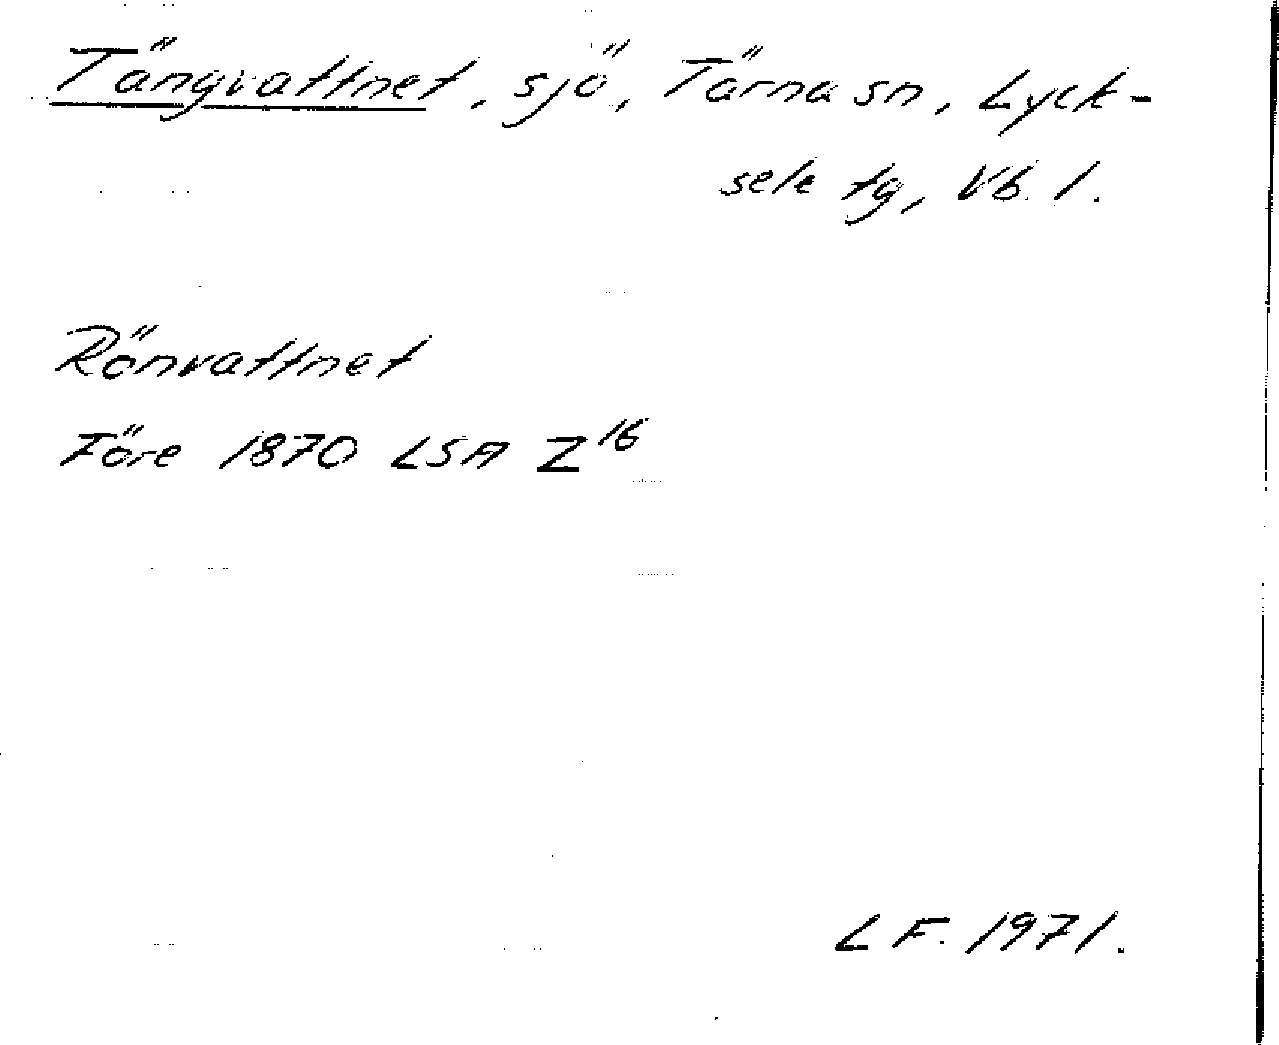 Tängvattnet, sjö, Tärna sn, Lyck-
sele tg, Vb. l.
Rönvattnet
Före 1870 LSA Z16
L F. 1971.